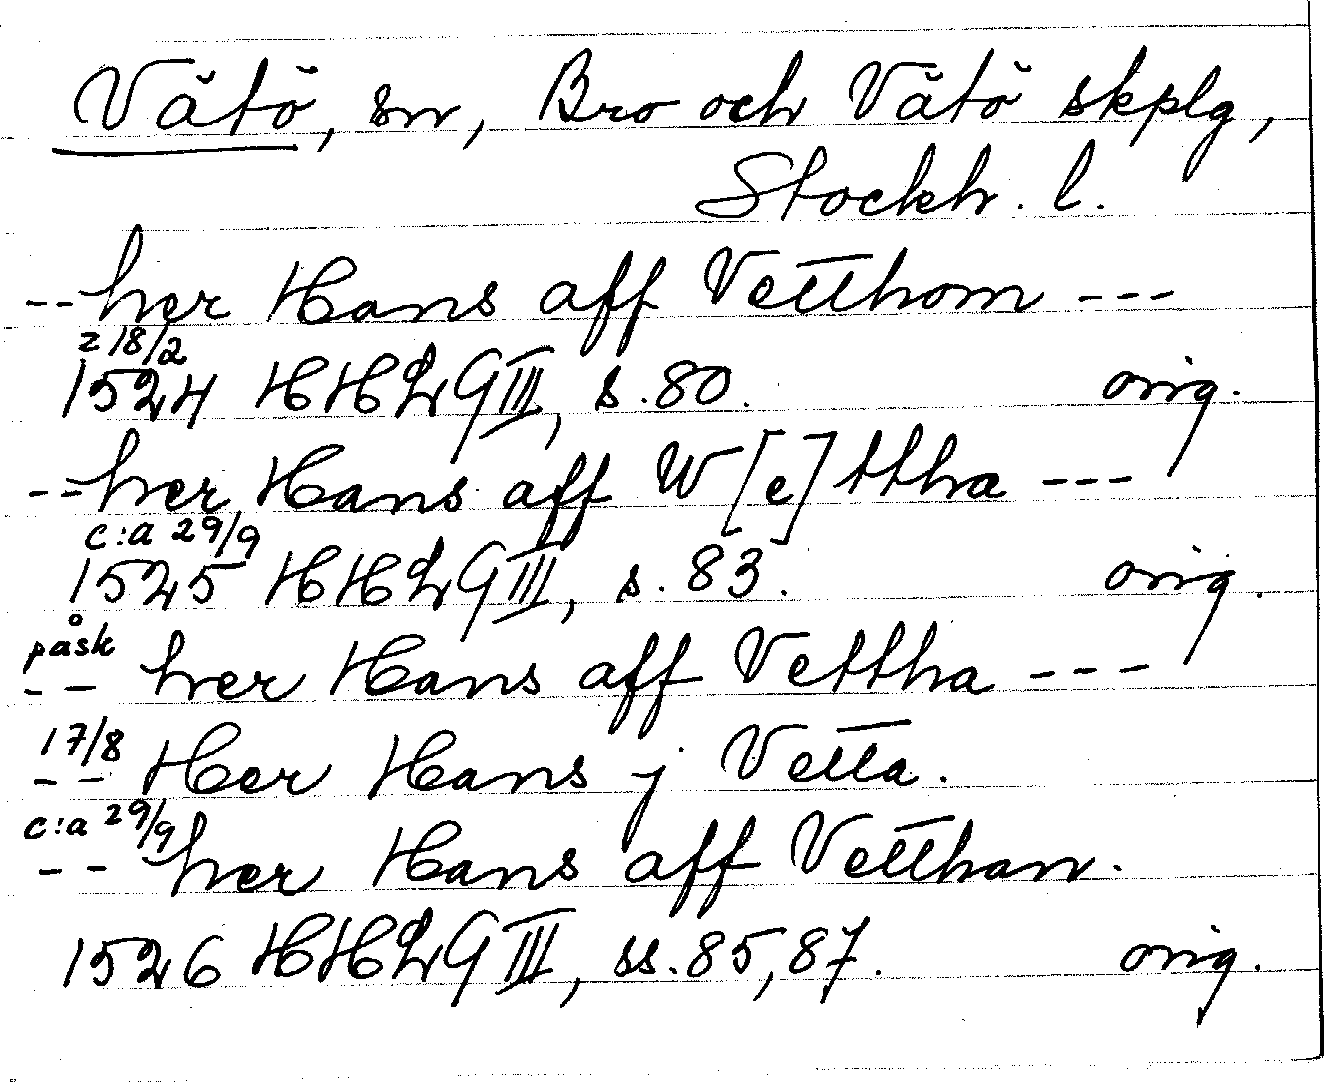 Vätö, sn, Bro och Vätö skplg,
Stockh. l.
-- her Hans aff Vetthom ---
18/2
1524 HHLG III, s. 80. orig.
-- her Hans aff W[e]ttha ---
c:a 29/9
1525 HHLG III, s. 83. orig.
påsk
-- her Hans aff Vettha ---
17/8
-- Her Hans j Vetta.
c:a 29/9
-- her Hans aff Vetthan.
1526 HHLG III, ss. 85, 87. orig.